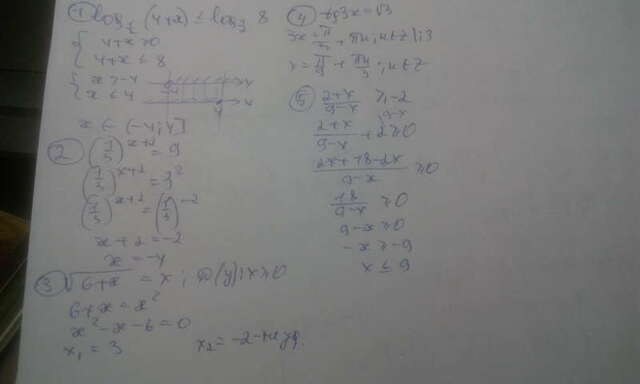 ① log₇ (4+x) ≤ log₇ 8
{ 4+x>0
4+x ≤ 8
{ x > -4
x ≤ 4
x ∈ (-4; 4]
② (1/3)^(x+2) = 9
(1/3)^(x+2) = 3²
(1/3)^(x+2) = (1/3)^(-2)
x + 2 = -2
x = -4
③ √(6+x) = x ; D(y): x ≥ 0
6+x = x²
x² - x - 6 = 0
x₁ = 3 x₂ = -2 -
④ tg3x = √3
3x = π/3 + πn, n∈Z |:3
x = π/9 + πn/3, n∈Z
⑤ (2+x)/(9-x) ≥ -2
(2+x)/(9-x) + 2 ≥ 0
(2x+18-2x)/(9-x) ≥ 0
18/(9-x) ≥ 0
9-x ≥ 0
-x ≥ -9
x ≤ 9